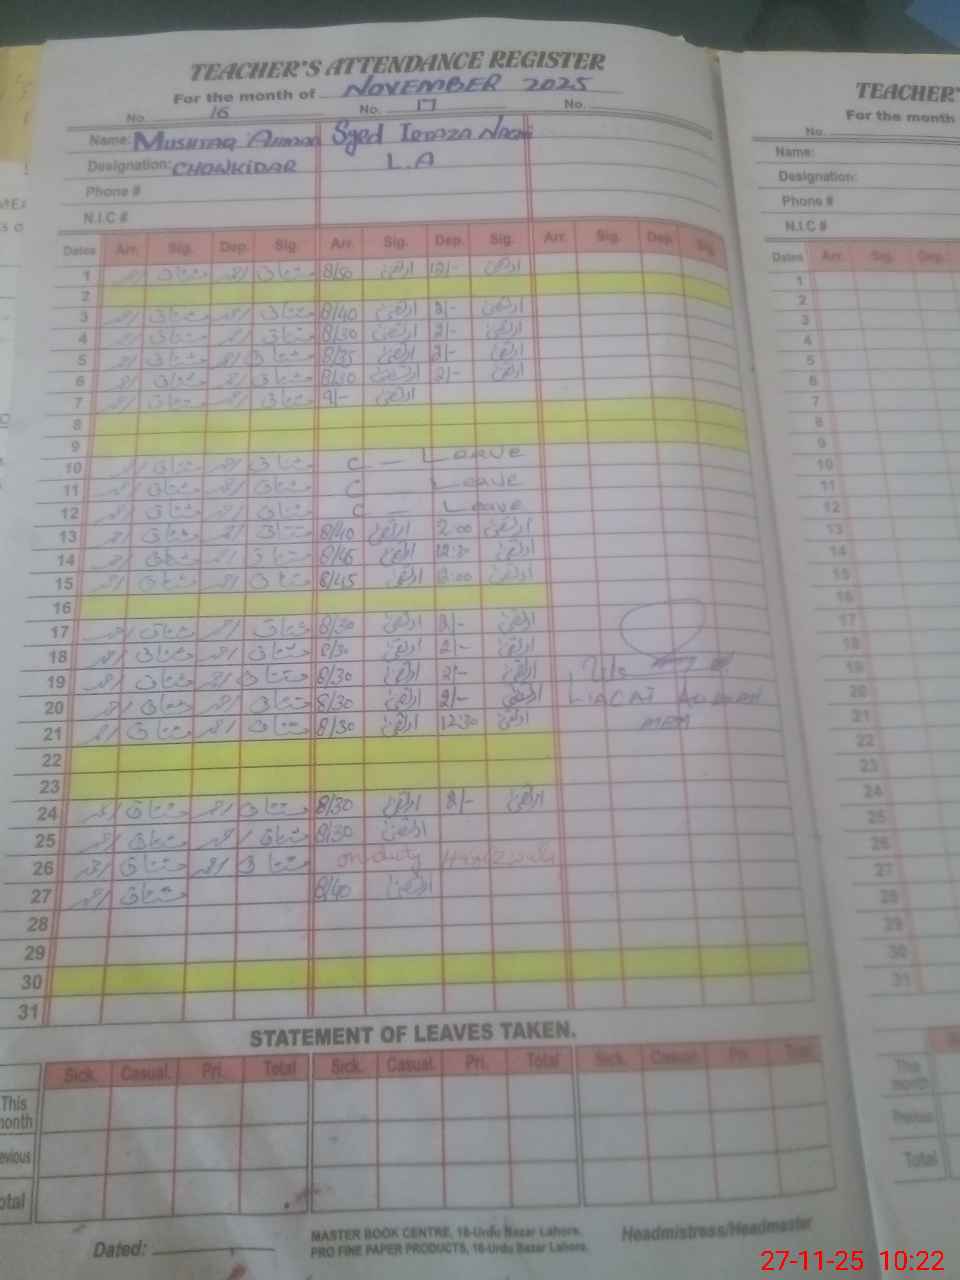 TEACHER'S ATTENDANCE REGISTER
For the month of NOVEMBER 2025
No. 16 No. 17 No.
Name: MUSHTAQ AHMAD Syed
Designation: CHOWKIDAR L.A
Phone #
N.I.C #
Dates Arr. Sig. Dep. Sig. Arr. Sig. Dep. Sig. Arr. Sig. Dep. Sig.
1 احمد مشتاق احمد مشتاق 8/30 ارتضیٰ 12/- ارتضیٰ
2
3 احمد مشتاق احمد مشتاق 8/40 ارتضیٰ 2/- ارتضیٰ
4 احمد مشتاق احمد مشتاق 8/30 ارتضیٰ 2/- ارتضیٰ
5 احمد مشتاق احمد مشتاق 8/35 ارتضیٰ 2/- ارتضیٰ
6 احمد مشتاق احمد مشتاق 8/30 ارتضیٰ 2/- ارتضیٰ
7 احمد مشتاق احمد مشتاق 9/- ارتضیٰ
8
9
10 احمد مشتاق احمد مشتاق C — Leave
11 احمد مشتاق احمد مشتاق C Leave
12 احمد مشتاق احمد مشتاق C — Leave
13 احمد مشتاق احمد مشتاق 8/40 ارتضیٰ 2:00 ارتضیٰ
14 احمد مشتاق احمد مشتاق 8/45 ارتضیٰ 12:30 ارتضیٰ
15 احمد مشتاق احمد مشتاق 8/45 ارتضیٰ 2:00 ارتضیٰ
16
17 احمد مشتاق احمد مشتاق 8/30 ارتضیٰ 2/- ارتضیٰ
18 احمد مشتاق احمد مشتاق 8/30 ارتضیٰ 2/- ارتضیٰ
19 احمد مشتاق احمد مشتاق 8/30 ارتضیٰ 2/- ارتضیٰ
20 احمد مشتاق احمد مشتاق 8/30 ارتضیٰ 2/- ارتضیٰ LIACAT
21 احمد مشتاق احمد مشتاق 8/30 ارتضیٰ 12:30 ارتضیٰ
22
23
24 احمد مشتاق احمد مشتاق 8/30 ارتضیٰ 2/- ارتضیٰ
25 احمد مشتاق احمد مشتاق 8/30 ارتضیٰ
26 احمد مشتاق احمد مشتاق on duty
27 احمد مشتاق 8/40 ارتضیٰ
28
29
30
31
STATEMENT OF LEAVES TAKEN.
Sick. Casual. Pri. Total Sick. Casual. Pri. Total Sick. Casual. Pri. Total
This month
evious
otal
Dated:
MASTER BOOK CENTRE, 16-Urdu Bazar Lahore.
PRO FINE PAPER PRODUCTS, 16-Urdu Bazar Lahore.
Headmistress/Headmaster
TEACHER'
For the month
No.
Name:
Designation:
Phone #
N.I.C #
Dates Arr. Sig. Dep.
1
2
3
4
5
6
7
8
9
10
11
12
13
14
15
16
17
18
19
20
21
22
23
24
25
26
27
28
29
30
31
This month
Previous
Total
27-11-25 10:22